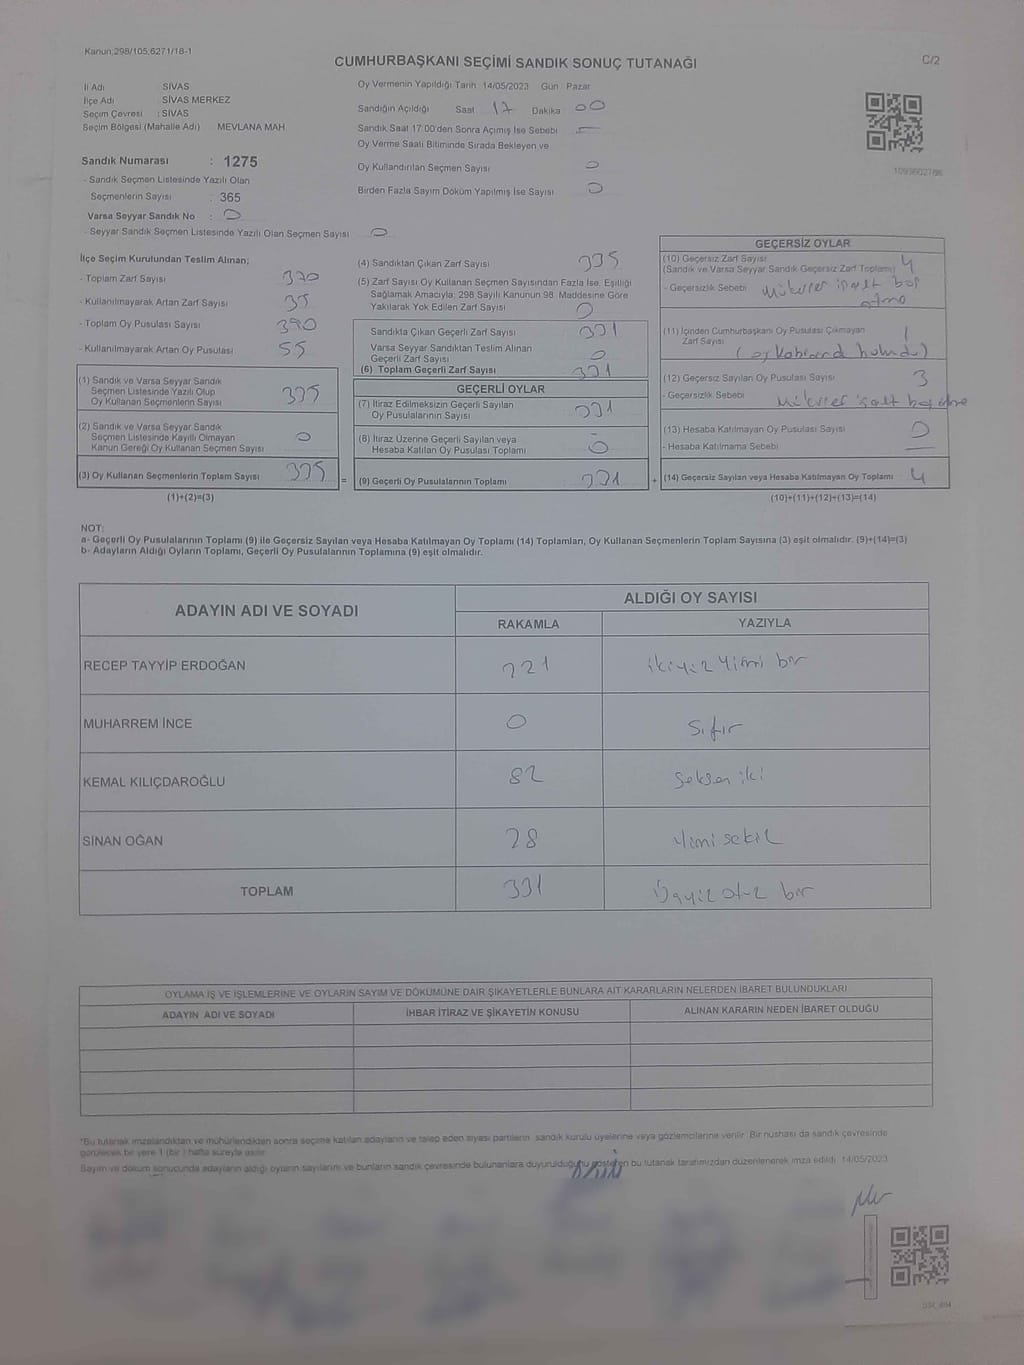 Kanun;298/105,6271/18-1
CUMHURBAŞKANI SEÇİMİ SANDIK SONUÇ TUTANAĞI
C/2
İl Adı SİVAS
İlçe Adı SİVAS MERKEZ
Seçim Çevresi : SİVAS
Seçim Bölgesi (Mahalle Adı) MEVLANA MAH
Sandık Numarası : 1275
- Sandık Seçmen Listesinde Yazılı Olan
Seçmenlerin Sayısı : 365
Varsa Seyyar Sandık No : 0
- Seyyar Sandık Seçmen Listesinde Yazılı Olan Seçmen Sayısı 0
Oy Vermenin Yapıldığı Tarih 14/05/2023 Gün Pazar
Sandığın Açıldığı Saat 17 Dakika 00
Sandık Saat 17:00'den Sonra Açımış İse Sebebi —
Oy Verme Saati Bitiminde Sırada Bekleyen ve
Oy Kullandırılan Seçmen Sayısı 0
Birden Fazla Sayım Döküm Yapılmış İse Sayısı 0
İlçe Seçim Kurulundan Teslim Alınan;
- Toplam Zarf Sayısı 370
- Kullanılmayarak Artan Zarf Sayısı 35
- Toplam Oy Pusulası Sayısı 390
- Kullanılmayarak Artan Oy Pusulası 55
(1) Sandık ve Varsa Seyyar Sandık
Seçmen Listesinde Yazılı Olup
Oy Kullanan Seçmenlerin Sayısı 335
(2) Sandık ve Varsa Seyyar Sandık
Seçmen Listesinde Kayıtlı Olmayan
Kanun Gereği Oy Kullanan Seçmen Sayısı 0
(3) Oy Kullanan Seçmenlerin Toplam Sayısı 335
(1)+(2)=(3)
(4) Sandıktan Çıkan Zarf Sayısı 335
(5) Zarf Sayısı Oy Kullanan Seçmen Sayısından Fazla İse, Eşitliği
Sağlamak Amacıyla; 298 Sayılı Kanunun 98. Maddesine Göre
Yakılarak Yok Edilen Zarf Sayısı 0
Sandıkta Çıkan Geçerli Zarf Sayısı 331
Varsa Seyyar Sandıktan Teslim Alınan
Geçerli Zarf Sayısı 0
(6) Toplam Geçerli Zarf Sayısı 331
GEÇERLİ OYLAR
(7) İtiraz Edilmeksizin Geçerli Sayılan
Oy Pusulalarının Sayısı 331
(8) İtiraz Üzerine Geçerli Sayılan veya
Hesaba Katılan Oy Pusulası Toplamı 0
= (9) Geçerli Oy Pusulalarının Toplamı 331 +
GEÇERSİZ OYLAR
(10) Geçersiz Zarf Sayısı 4
(Sandık ve Varsa Seyyar Sandık Geçersiz Zarf Toplamı)
- Geçersizlik Sebebi
(11) İçinden Cumhurbaşkanı Oy Pusulası Çıkmayan
Zarf Sayısı 1
(12) Geçersiz Sayılan Oy Pusulası Sayısı 3
- Geçersizlik Sebebi
(13) Hesaba Katılmayan Oy Pusulası Sayısı 0
- Hesaba Katılmama Sebebi —
(14) Geçersiz Sayılan veya Hesaba Katılmayan Oy Toplamı 4
(10)+(11)+(12)+(13)=(14)
NOT:
a- Geçerli Oy Pusulalarının Toplamı (9) ile Geçersiz Sayılan veya Hesaba Katılmayan Oy Toplamı (14) Toplamları, Oy Kullanan Seçmenlerin Toplam Sayısına (3) eşit olmalıdır. (9)+(14)=(3)
b- Adayların Aldığı Oyların Toplamı, Geçerli Oy Pusulalarının Toplamına (9) eşit olmalıdır.
ADAYIN ADI VE SOYADI ALDIĞI OY SAYISI
RAKAMLA YAZIYLA
RECEP TAYYİP ERDOĞAN 221 ikiyüz Yirmi bir
MUHARREM İNCE 0 Sıfır
KEMAL KILIÇDAROĞLU 82 Seksen iki
SİNAN OĞAN 28 Yirmi sekiz
TOPLAM 331 Üçyüz otuz bir
OYLAMA İŞ VE İŞLEMLERİNE VE OYLARIN SAYIM VE DÖKÜMÜNE DAİR ŞİKAYETLERLE BUNLARA AİT KARARLARIN NELERDEN İBARET BULUNDUKLARI
ADAYIN ADI VE SOYADI İHBAR İTİRAZ VE ŞİKAYETİN KONUSU ALINAN KARARIN NEDEN İBARET OLDUĞU
*Bu tutanak imzalandıktan ve mühürlendikten sonra seçime katılan adayların ve talep eden siyasi partilerin sandık kurulu üyelerine veya gözlemcilerine verilir. Bir nüshası da sandık çevresinde
görülecek bir yere 1 (bir) hafta süreyle asılır.
Sayım ve döküm sonucunda adayların aldığı oyların sayılarını ve bunların sandık çevresinde bulunanlara duyurulduğunu gösteren bu tutanak tarafımızdan düzenlenerek imza edildi. 14/05/2023